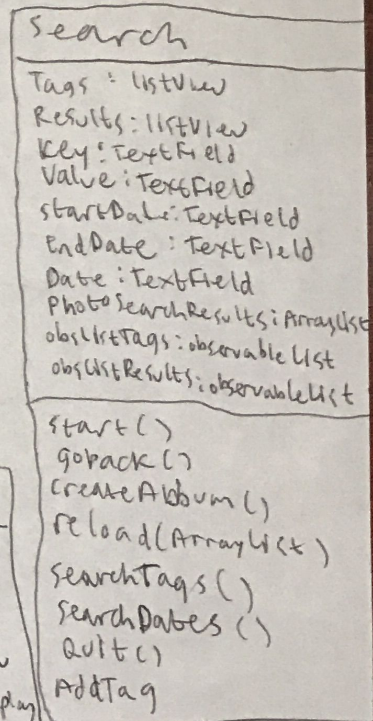 Search
Tags : listView
Results : listView
Key : TextField
Value : TextField
startDate : TextField
EndDate : TextField
Date : TextField
PhotoSearchResults : ArrayList
obsListTags : observableList
obsListResults : observableList
start()
goback()
createAlbum()
reload(ArrayList)
searchTags()
searchDates()
Quit()
AddTag
play